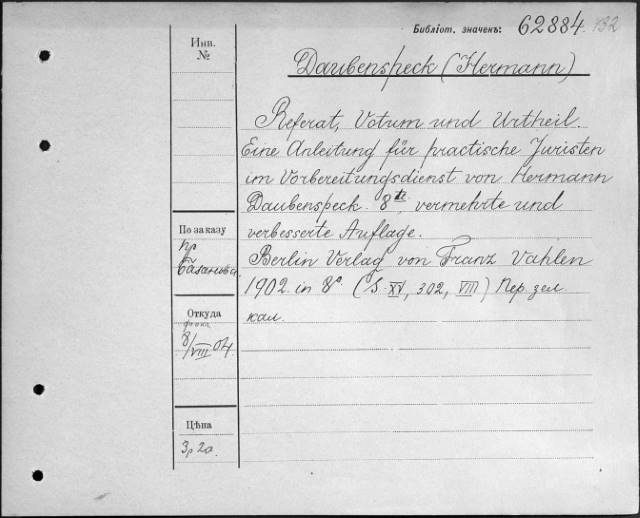 Библіот. значекъ: 62884. 132
Инв.
№
Daubenspeck (Hermann)
Referat, Votum und Urtheil.
Eine Anleitung für practische Juristen
im Vorbereitungsdienst von Hermann
Daubenspeck. 8te, vermehrte und
verbesserte Auflage.
Berlin Verlag von Franz Vahlen
1902. in 8°. (S. XV, 302, VIII.) Пер. зел.
кал.
По заказу
пр
Откуда
8/VIII 04.
Цѣна
3р 20.